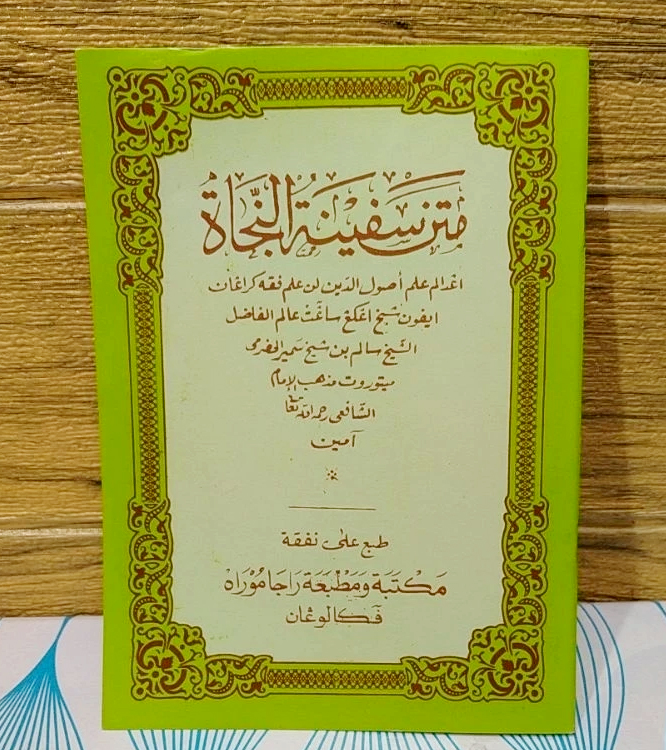 متن سفينة النجاة
اغدالم علم أصول الدين لن علم فقه كراغان
ايفون شيخ اغكغ ساغت عالم الفاضل
الشيخ سالم بن شيخ سمير الحضرمى
ميتوروت مذهب الإمام
الشافعى رحمه الله تعالى
آمين
طبع على نفقة
مَكْتَبَة وَمَطْبَعَة رَاجَا مُوْرَاهْ
فكالوڠان